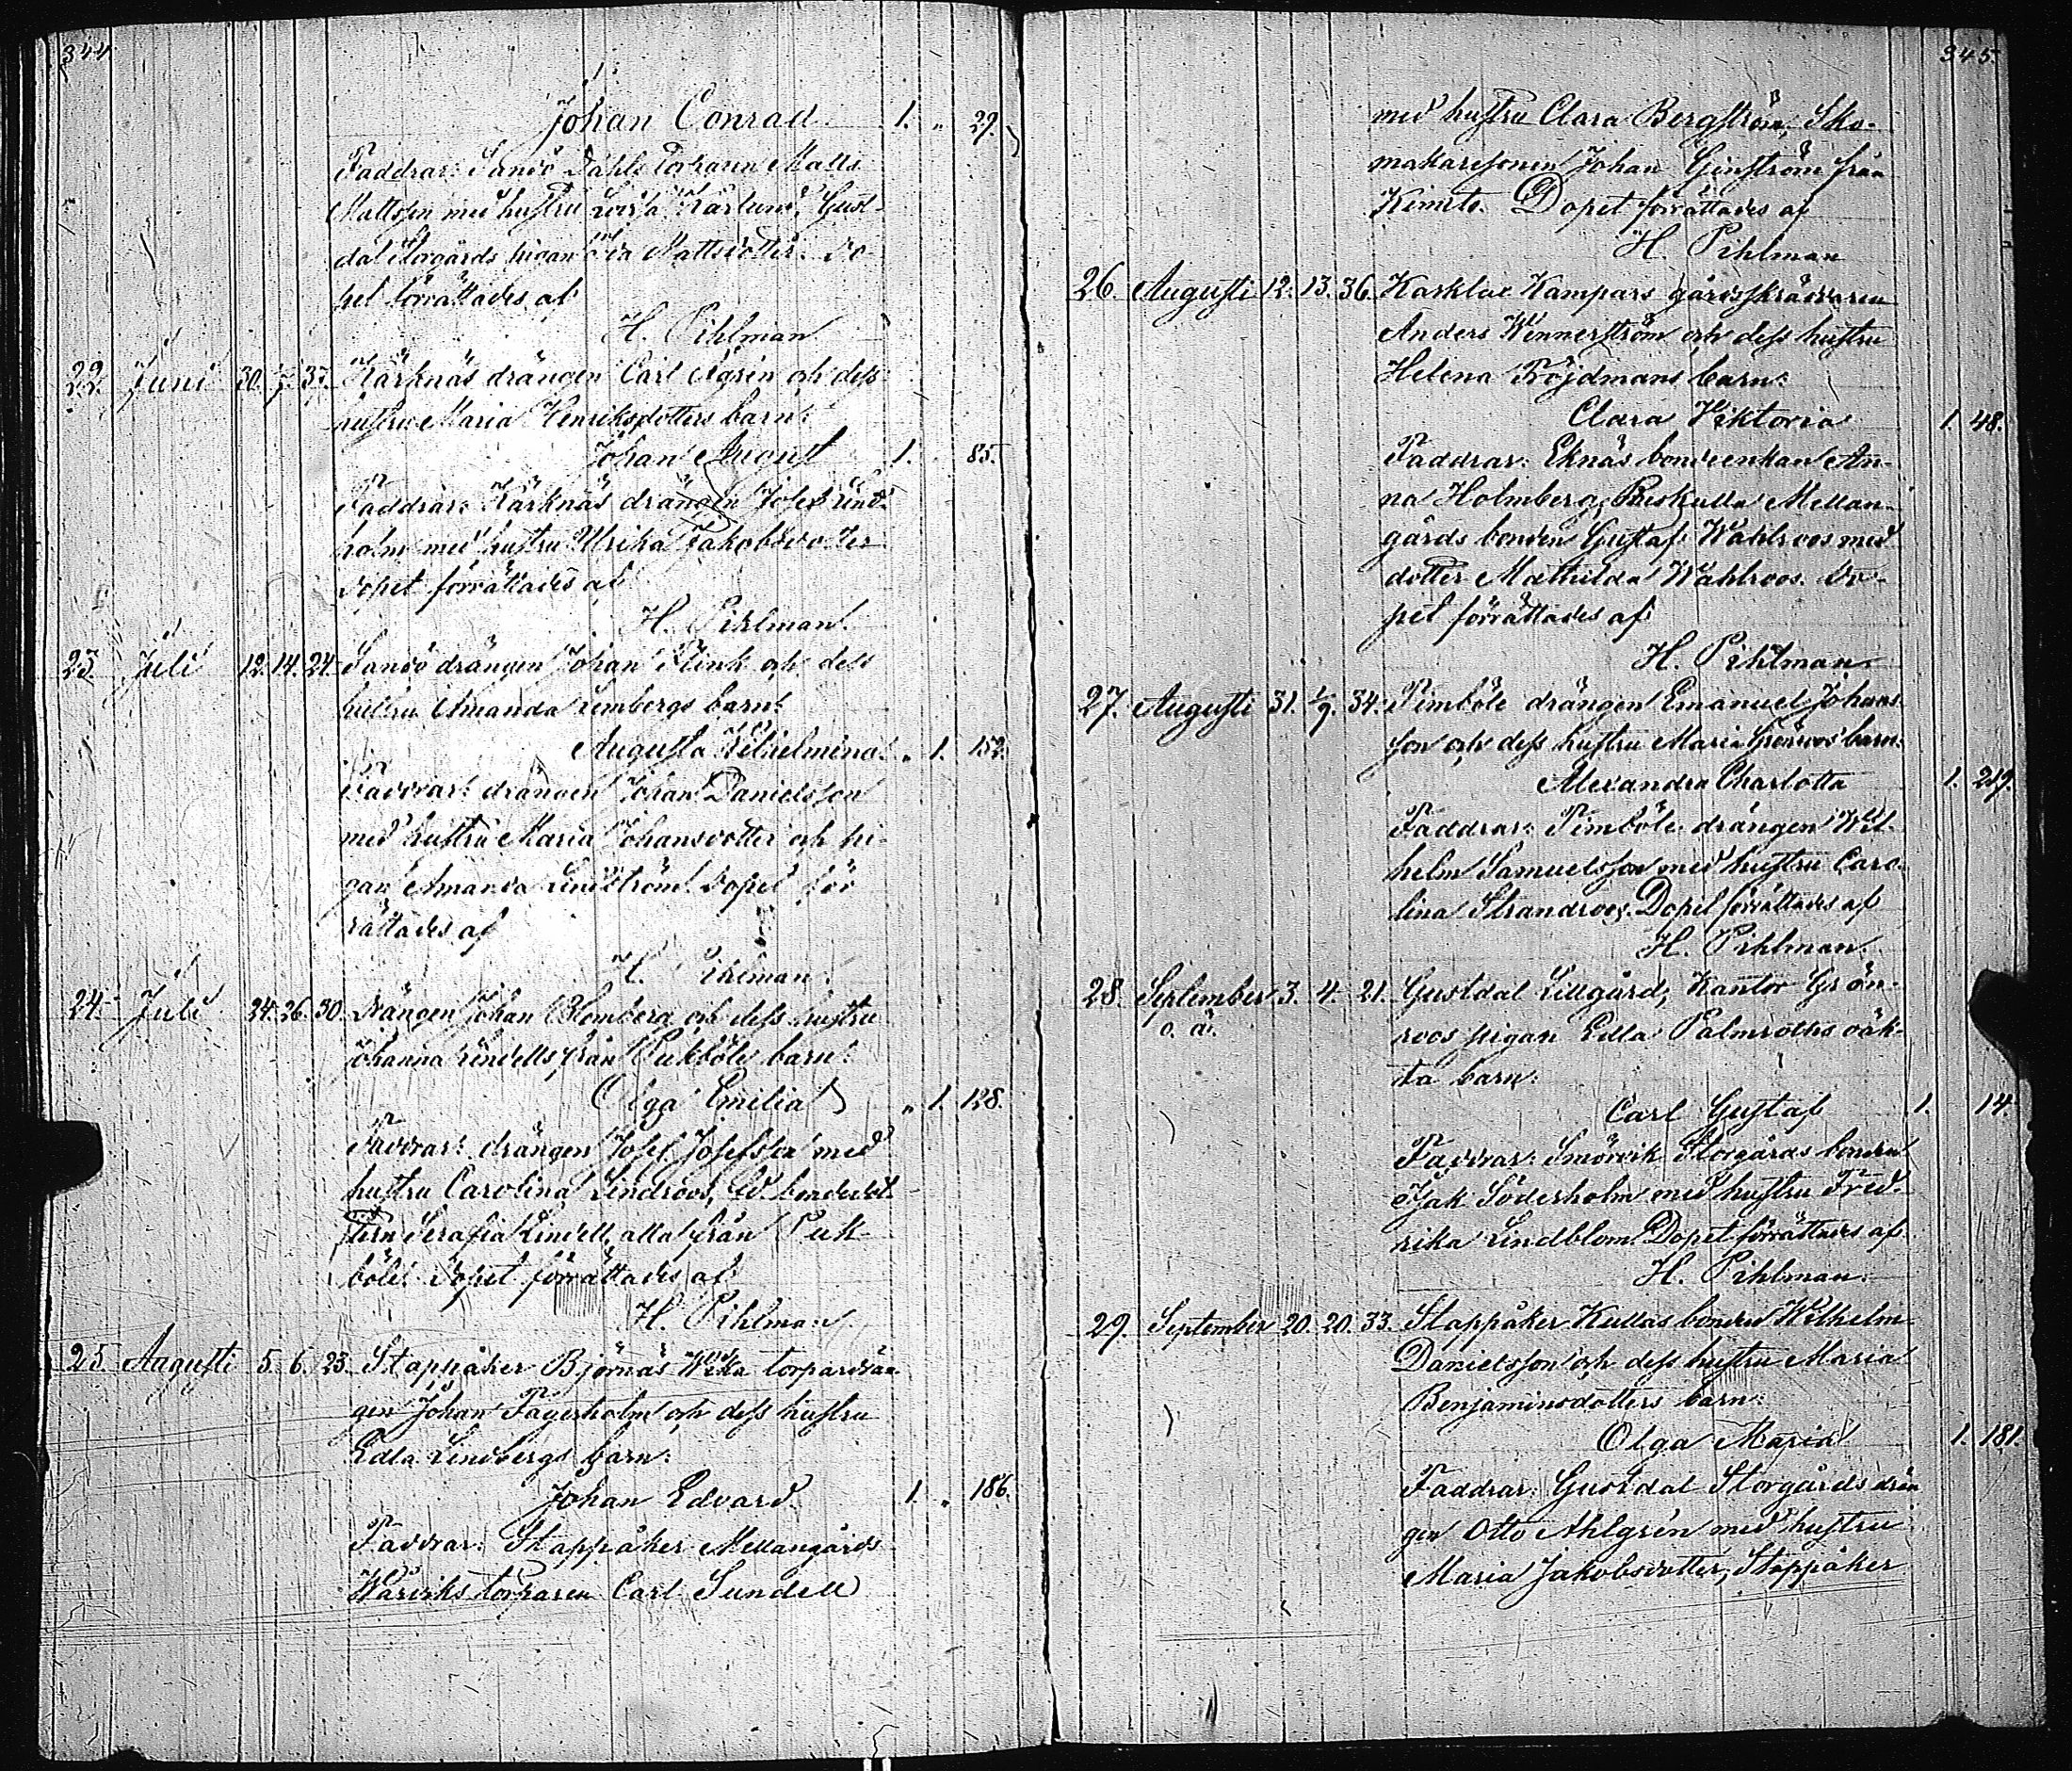 344
Johan Conrad. 1. " 29.
Faddrar: Sandö Dahls Torparen Matts
Mattsson med hustru Lovisa Karlund, Gust-
dal Storgårds pigan Eva Mattsdotter. Do-
pet förrättades af
H. Pihlman
22. Juni 30. 1/7. 37. Kärknäs drängen Carl Ågrén och dess
hustru Maria Henriksdotters barn:
Johan August 1. 85.
Faddrar: Kärknäs drängen Josef Lind-
holm med hustru Ulrika Jakobsdotter
Dopet förrättades af
H. Pihlman.
23. Juli 12. 14. 24. Sandö drängen Johan Flink och dess
hustru Amanda Limbergs barn:
Augusta Wilhelmina. " 1. 152.
Faddrar: drängen Johan Danielsson
med hustru Maria Johansdotter och pi-
gan Amanda Lindström. Dopet för-
rättades af
H. Pihlman.
24. Juli 24. 26. 30. Drängen Johan Blomberg och dess hustru
Johanna Lindells från Pukböle barn:
Olga Emilia " 1. 128.
Faddrar: drängen Josef Josefsson med
hustru Carolina Lindroos, bondedot-
tern Serafia Lindell, alla från Puk-
böle. Dopet förrättades af
H. Pihlman
25. Augusti 5. 6. 23. Stappåker Björnäs Wika torpardrän-
gen Johan Fagerholm och dess hustru
Edla Lindbergs barn:
Johan Edvard. 1. " 186.
Faddrar: Stappåker Mellangårds
Warviks torparen Carl Sundell
345.
med hustru Clara Bergström, Sko-
makaresonen Johan Ginström från
Kimito. Dopet förrättades af
H. Pihlman
26. Augusti 12. 13. 36. Karklax Kampars gårdsskräddaren
Anders Wennerström och dess hustru
Helena Fröjdmans barn:
Clara Viktoria 1. 48.
Faddrar: Eknäs bondeenkan An-
na Holmberg, Preskulla Mellan-
gårds bonden Gustaf Wahlroos med
dotter Mathilda Wahlroos. Do-
pet förrättades af
H. Pihlman.
27. Augusti 31. 1/9. 34. Pimböle drängen Emanuel Johans-
son och dess hustru Maria Grönroos barn:
Alexandra Charlotta 1. 219.
Faddrar: Pimböle drängen Wil-
helm Samuelsson med hustru Caro-
lina Strandroos. Dopet förrättades af
H. Pihlman.
28. September 3. 4. 21. Gustdal Lillgård, Kantor Grön-
o. ä. roos pigan Edla Palmroths oäk-
ta barn:
Carl Gustaf 1. 14.
Faddrar: Smörvik Storgårds bonden
Isak Söderholm med hustru Fred-
rika Lindblom. Dopet förrättades af
H. Pihlman.
29. September 20. 20. 33. Stappåker Kullas bonden Wilhelm
Danielsson och dess hustru Maria
Benjaminsdotters barn:
Olga Maria 1. 181.
Faddrar: Gustdal Storgårds drän-
gen Otto Ahlgrén med hustru
Maria Jakobsdotter, Stappåker